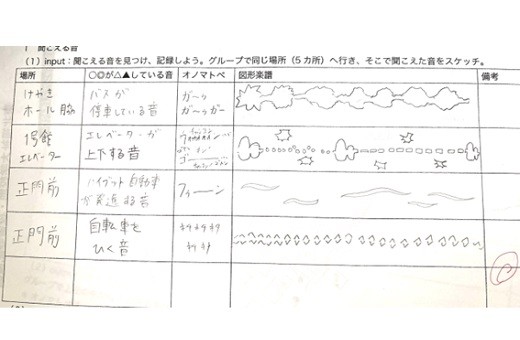 1 聞こえる音
（1）input：聞こえる音を見つけ、記録しよう。グループで同じ場所（5カ所）へ行き、そこで聞こえた音をスケッチ。
場所 ○◎が△▲している音 オノマトペ 図形楽譜 備考
けやき
ホール脇
バスが
停車している音
ガーッ
ガーッガー
1号館
エレベーター
エレベーターが
上下する音
正門前
ハイブリット自動車
が発進する音
フィーーン
正門前
自転車を
ひく音